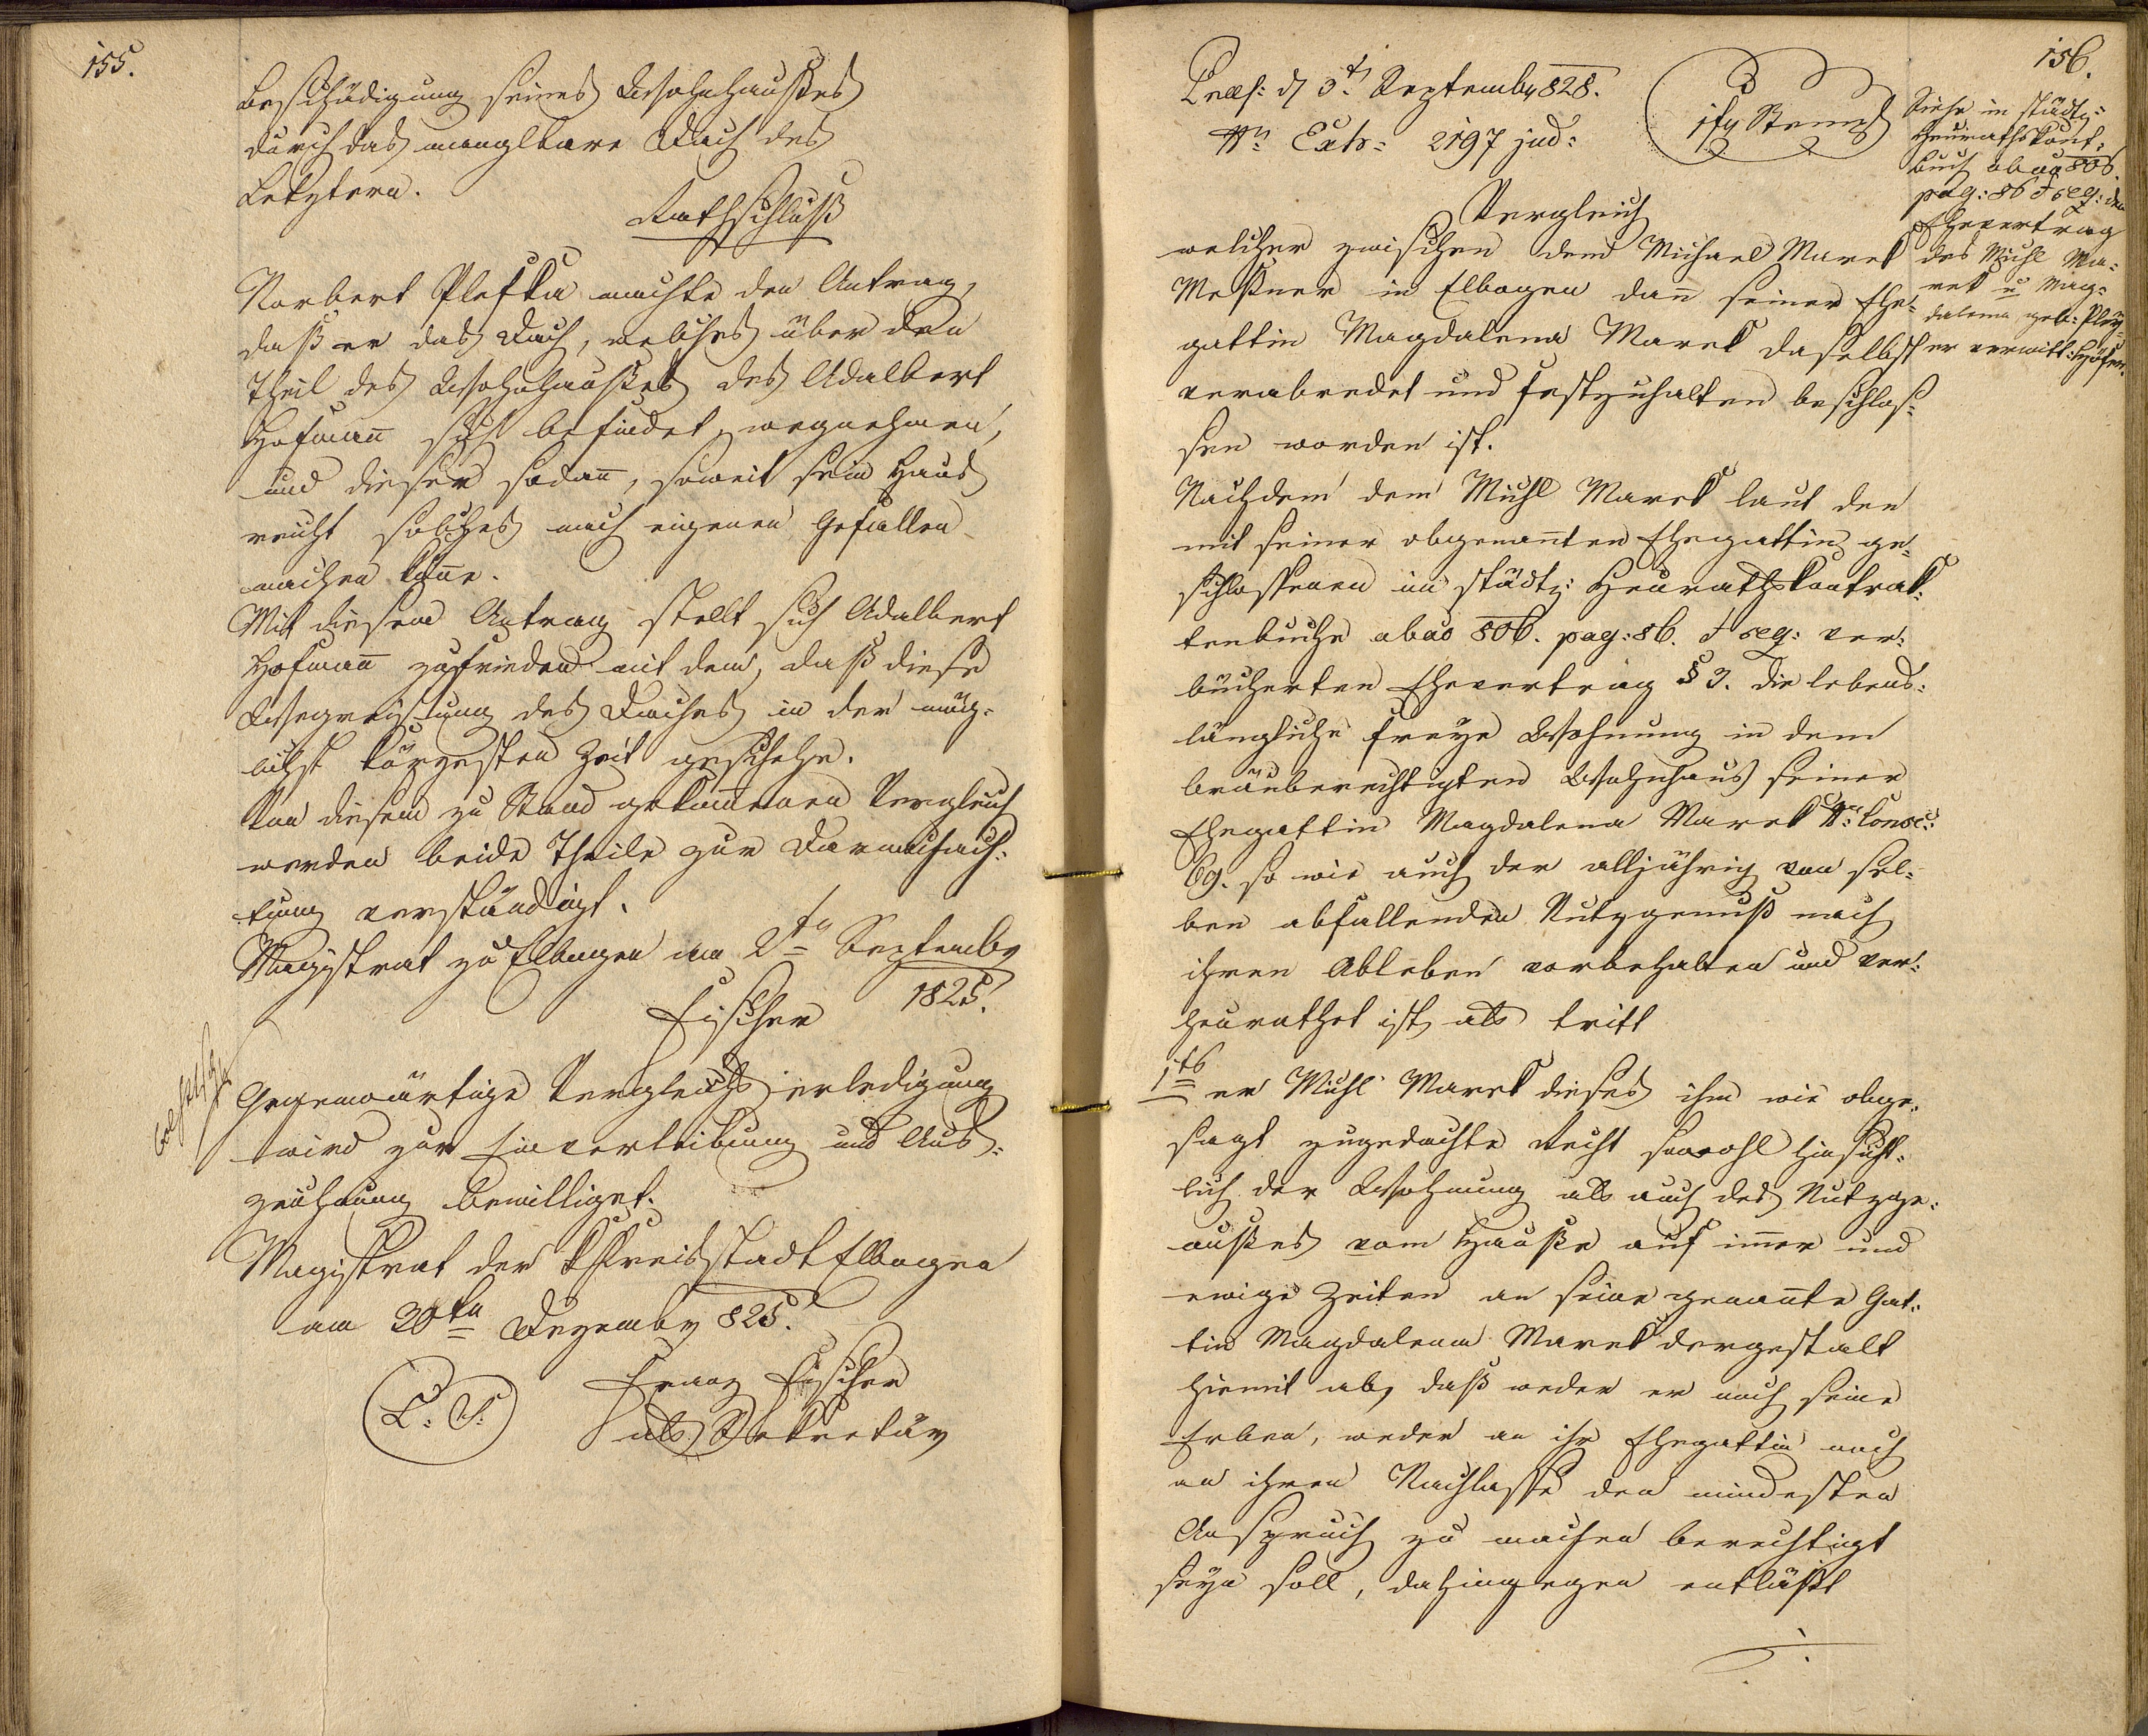 155.
Beschädigung seines Wohnhaußes
durch das manglbare Dach des
Letztern.
Rathschluß
Norbert Plefka machte den Antrag,
daß er das Dach, welches über den
Theil des Wohnhaußes des Adalbert
Hofman̄ sich befindet, wegnehmen,
und dieser sodan̄, soweit sein Haus
reicht solches nach eigenen Gefallen
machen kön̄e.
Mit diesem Antrag stellt sich Adalbert
Hofman̄ zufrieden mit dem, daß diese
des Daches in der mög-
lichst kürzesten Zeit geschehe.
Von diesem zu Stand gekom̄enen Vergleich
werden beide Theile zur Darnachach-
tung verständigt.
Magistrat zu Elbogen am 2tn Septembr
1825.
Fischer
Gegenwärtige Vergleichs erledigung
wird zur Einverleibung und Aus-
zeichnung bewilliget.
Magistrat der k Kreisstadt Elbogen
am 30tn Dezembr 825.
L. S.
Franz Fischer
als Sekretär
156.
Praes: d 3t Septembr 828.
Nr Exh: 2197 jud:
1 fr Stempl
Siehe in städty:
Heurathskont-
buch abao 806.
pag: 86 & seq: den
Ehevertrag
des Michl Ma-
rek u Mag-
dalena geb:
verwitt:
Vergleich
welcher zwischen dem Michael Marek
Meßner in Elbogen dan̄ seiner Ehe-
gattin Magdalena Marek daselbst
verabredet und festzuhalten beschlos-
sen worden ist.
Nachdem dem Michl Marek laut den
mit seiner obgenan̄ten Ehegattin ge-
schlossenen im städty: Heurathskontrak-
tenbuche abao 806. pag: 86. & seq: ver-
bücherten Ehevertrag § 3. die lebens-
längliche freye Wohnung in dem
bräuberechtigten Wohnhaus seiner
Ehegattin Magdalena Marek Nr: Consc:
69. so wie auch der alljährig von sel-
ben abfallenden Nutzgenuß nach
ihren Ableben vorbehalten und ver-
heurathet ist, als tritt
1ts er Michl Marek dieses ihm wie obge-
sagt zugedachte Recht sowohl hinsicht-
lich der Wohnung als auch des Nutzge-
nußes vom Hauße auf im̄er und
ewige Zeiten an seine genan̄te Gat-
tin Magdalena Marek dergestalt
hiemit ab, daß weder er noch seine
Erben, weder an ihr Ehegattin noch
an ihren Nachlasse den mindesten
Anspruch zu machen berechtigt
seyn soll, dahingegen entläßt